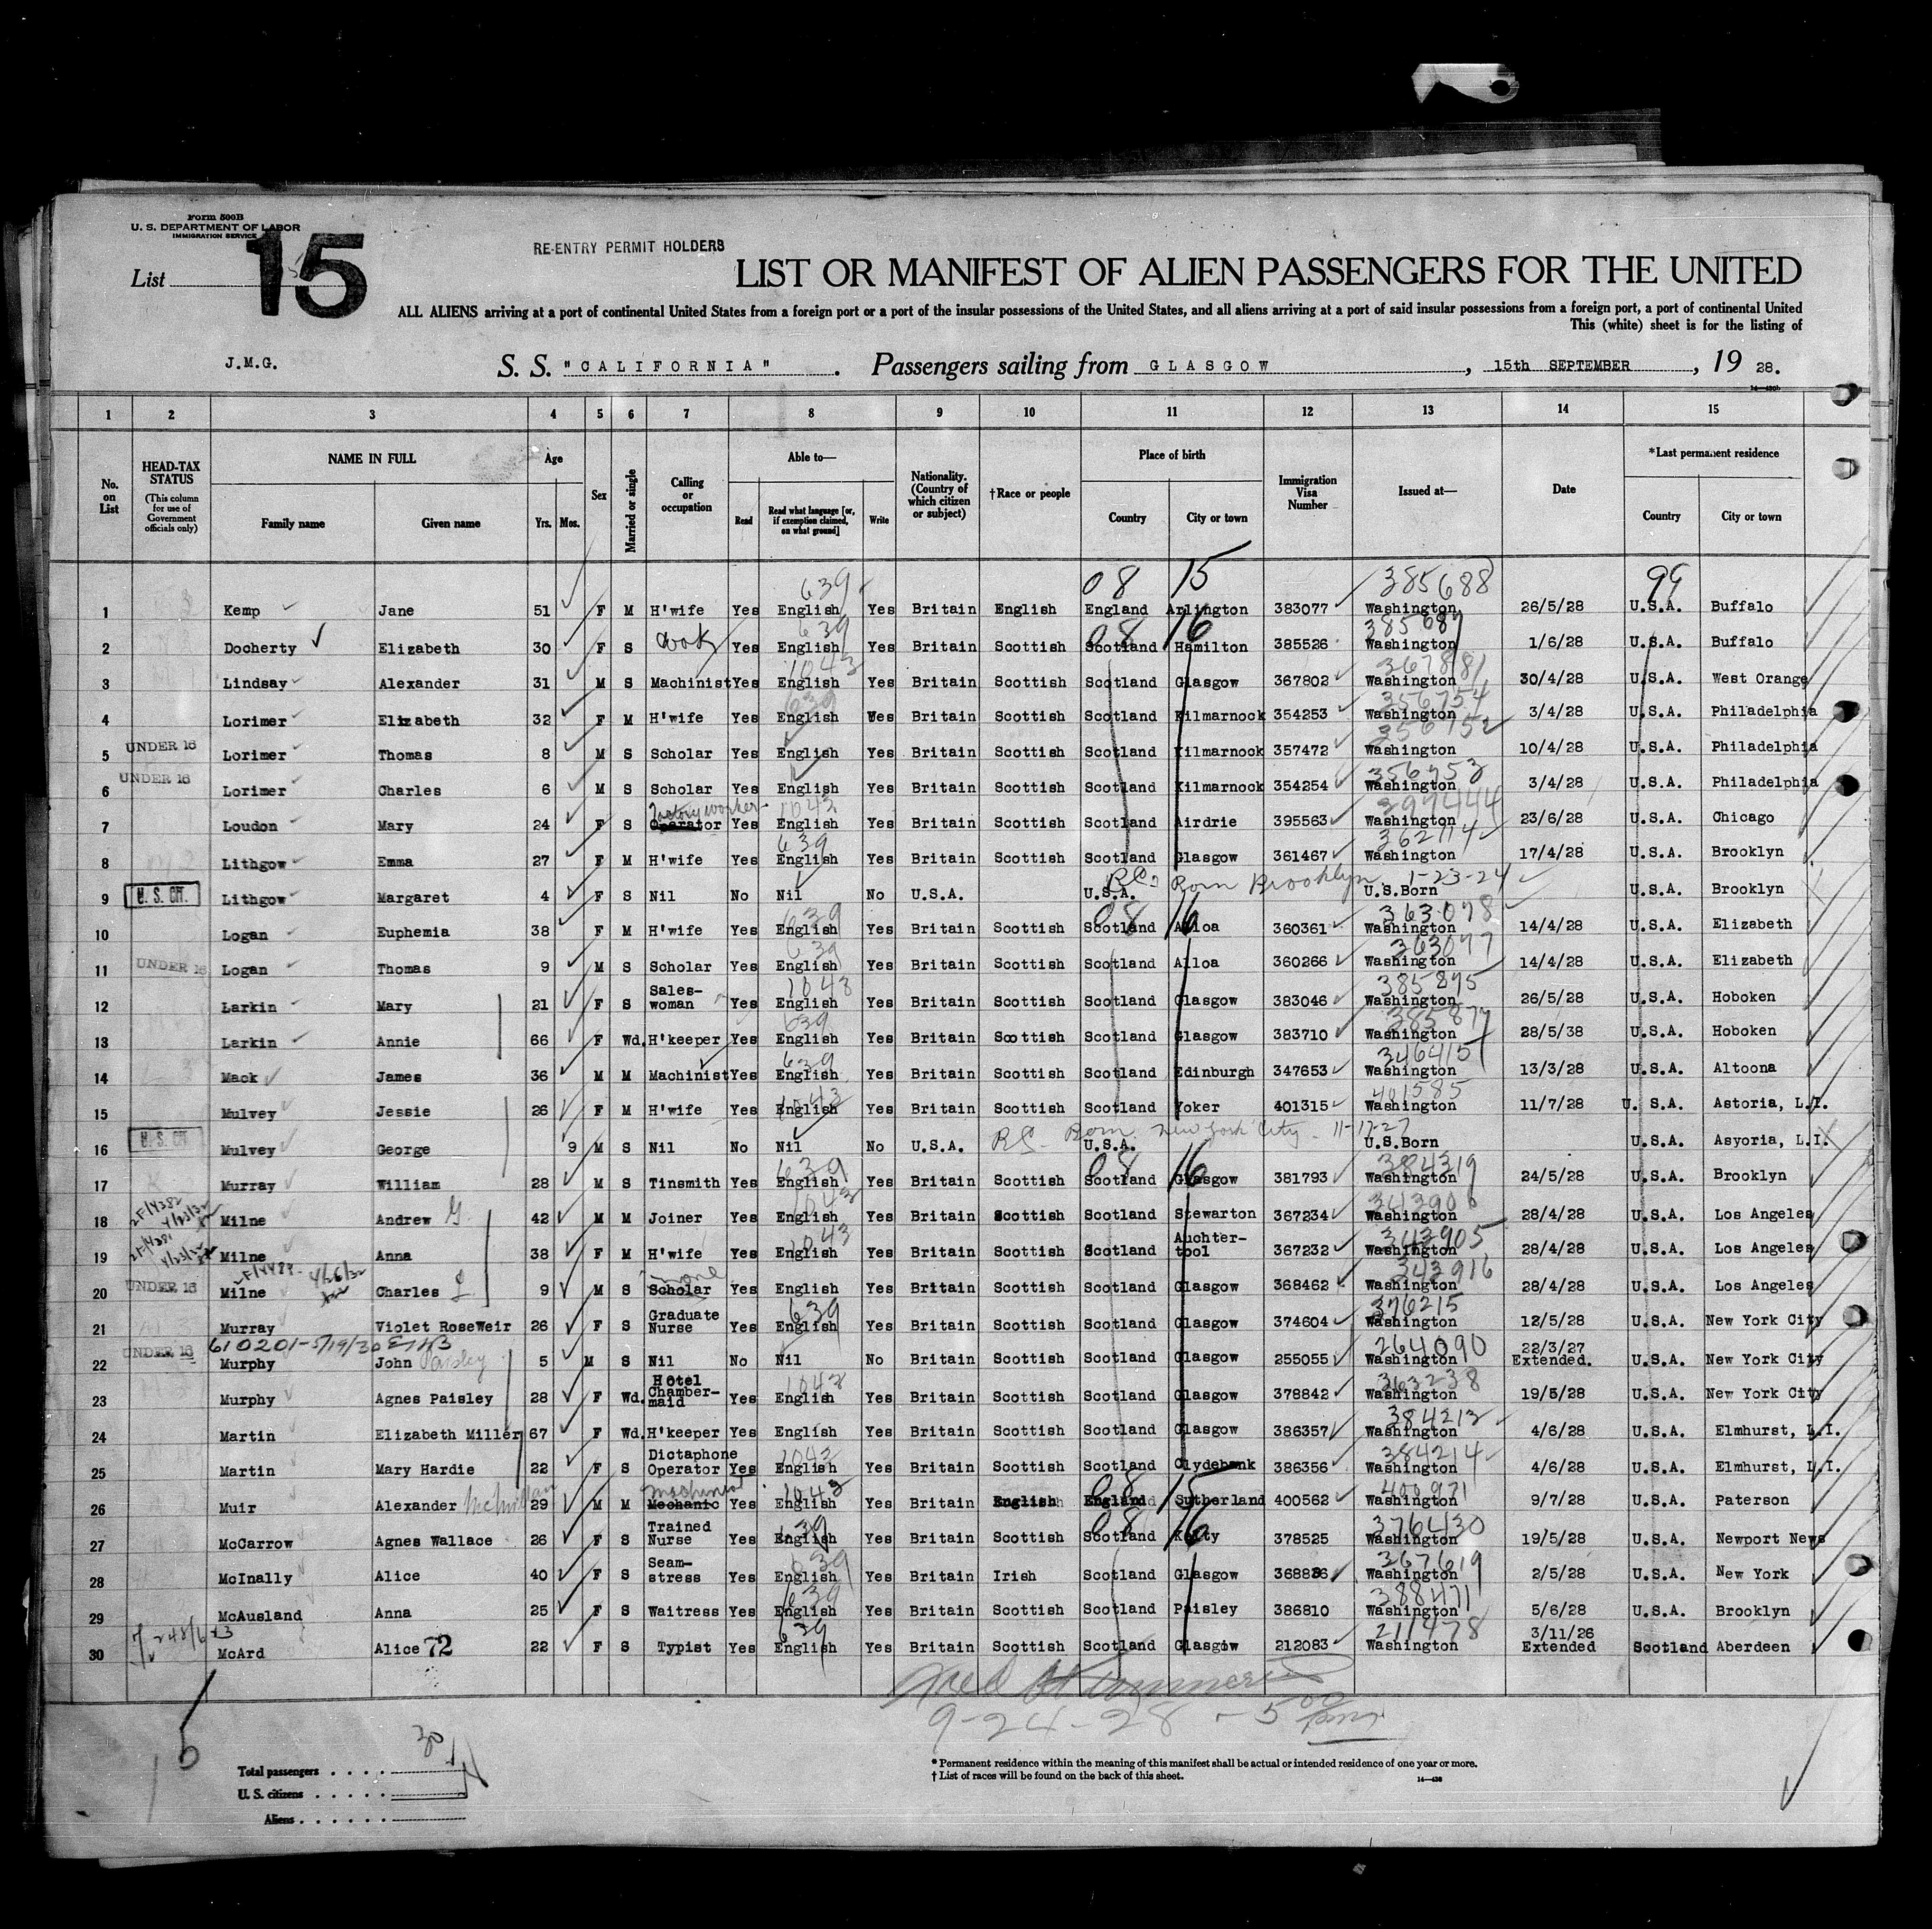 Form 500B
U. S. DEPARTMENT OF LABOR
IMMIGRATION SERVICE
List 15
RE-ENTRY PERMIT HOLDERS
LIST OR MANIFEST OF ALIEN PASSENGERS FOR THE UNITED
ALL ALIENS arriving at a port of continental United States from a foreign port or a port of the insular possessions of the United States, and all aliens arriving at a port of said insular possessions from a foreign port, a port of continental United
This (white) sheet is for the listing of
J.M.G. S. S. "CALIFORNIA" . Passengers sailing from GLASGOW , 15th SEPTEMBER , 19 28.
1 2 3 4 5 6 7 8 9 10 11 12 13 14 15
No. on List HEAD-TAX STATUS (This column for use of Government officials only) NAME IN FULL Family name Given name Age Yrs. Mos. Sex Married or single Calling or occupation Able to— Read Read what language [or, if exemption claimed, on what ground] Write Nationality. (Country of which citizen or subject) †Race or people Place of birth Country City or town Immigration Visa Number Issued at— Date *Last permanent residence Country City or town
639 08 15 385688 99
1 Kemp Jane 51 F M H'wife Yes English Yes Britain English England Arlington 383077 Washington 26/5/28 U.S.A. Buffalo
639 08 16 385687
2 Docherty Elizabeth 30 F S Cook Yes English Yes Britain Scottish Scotland Hamilton 385526 Washington 1/6/28 U.S.A. Buffalo
1043 367881
3 Lindsay Alexander 31 M S Machinist Yes English Yes Britain Scottish Scotland Glasgow 367802 Washington 30/4/28 U.S.A. West Orange
639 356754
4 Lorimer Elizabeth 32 F M H'wife Yes English Wes Britain Scottish Scotland Kilmarnock 354253 Washington 3/4/28 U.S.A. Philadelphia
356752
5 UNDER 16 Lorimer Thomas 8 M S Scholar Yes English Yes Britain Scottish Scotland Kilmarnock 357472 Washington 10/4/28 U.S.A. Philadelphia
356753
6 UNDER 16 Lorimer Charles 6 M S Scholar Yes English Yes Britain Scottish Scotland Kilmarnock 354254 Washington 3/4/28 U.S.A. Philadelphia
Factory worker 1043 397444
7 Loudon Mary 24 F S Operator Yes English Yes Britain Scottish Scotland Airdrie 395563 Washington 23/6/28 U.S.A. Chicago
639 362114
8 Lithgow Emma 27 F M H'wife Yes English Yes Britain Scottish Scotland Glasgow 361467 Washington 17/4/28 U.S.A. Brooklyn
Born Brooklyn 1-23-24
9 U. S. CIT. Lithgow Margaret 4 F S Nil No Nil No U.S.A. U.S.A. U.S.Born U.S.A. Brooklyn
639 08 16 363078
10 Logan Euphemia 38 F M H'wife Yes English Yes Britain Scottish Scotland Alloa 360361 Washington 14/4/28 U.S.A. Elizabeth
639 363077
11 UNDER 16 Logan Thomas 9 M S Scholar Yes English Yes Britain Scottish Scotland Alloa 360266 Washington 14/4/28 U.S.A. Elizabeth
1043 385895
12 Larkin Mary 21 F S Sales-woman Yes English Yes Britain Scottish Scotland Glasgow 383046 Washington 26/5/28 U.S.A. Hoboken
639 385877
13 Larkin Annie 66 F Wd. H'keeper Yes English Yes Britain Scottish Scotland Glasgow 383710 Washington 28/5/38 U.S.A. Hoboken
639 346415
14 Mack James 36 M M Machinist Yes English Yes Britain Scottish Scotland Edinburgh 347653 Washington 13/3/28 U.S.A. Altoona
1043 401585
15 Mulvey Jessie 26 F M H'wife Yes English Yes Britain Scottish Scotland Yoker 401315 Washington 11/7/28 U. S.A. Astoria, L.I.
Born New York City 11-17-27
16 U. S. CIT. Mulvey George 9 M S Nil No Nil No U.S.A. U.S.A. U.S.Born U.S.A. Asyoria, L.I.
639 08 16 384319
17 Murray William 28 M S Tinsmith Yes English Yes Britain Scottish Scotland Glasgow 381793 Washington 24/5/28 U.S.A. Brooklyn
1043 343906
18 Milne Andrew G. 42 M M Joiner Yes English Yes Britain Scottish Scotland Stewarton 367234 Washington 28/4/28 U.S.A. Los Angeles
1043 343905
19 Milne Anna 38 F M H'wife Yes English Yes Britain Scottish Scotland Auchter-tool 367232 Washington 28/4/28 U.S.A. Los Angeles
4/26/32 none 343916
20 UNDER 16 Milne Charles 9 M S Scholar Yes English Yes Britain Scottish Scotland Glasgow 368462 Washington 28/4/28 U.S.A. Los Angeles
639 376215
21 Murray Violet RoseWeir 26 F S Graduate Nurse Yes English Yes Britain Scottish Scotland Glasgow 374604 Washington 12/5/28 U.S.A. New York City
610201-5/19/30 264090
22 UNDER 16 Murphy John Paisley 5 M S Nil No Nil No Britain Scottish Scotland Glasgow 255055 Washington 22/3/27 Extended. U.S.A. New York City
1043 363238
23 Murphy Agnes Paisley 28 F Wd. Hotel Chamber-maid Yes English Yes Britain Scottish Scotland Glasgow 378842 Washington 19/5/28 U.S.A. New York City
384213
24 Martin Elizabeth Miller 67 F Wd. H'keeper Yes English Yes Britain Scottish Scotland Glasgow 386357 Washington 4/6/28 U.S.A. Elmhurst, L.I.
1043 384214
25 Martin Mary Hardie 22 F S Dictaphone Operator Yes English Yes Britain Scottish Scotland Clydebank 386356 Washington 4/6/28 U.S.A. Elmhurst, L.I.
1043 08 15 400971
26 Muir Alexander McMillan 29 M M Mechanic Yes English Yes Britain English England Sutherland 400562 Washington 9/7/28 U.S.A. Paterson
639 08 16 376430
27 McCarrow Agnes Wallace 26 F S Trained Nurse Yes English Yes Britain Scottish Scotland Kelty 378525 Washington 19/5/28 U.S.A. Newport News
639 367619
28 McInally Alice 40 F S Seam-stress Yes English Yes Britain Irish Scotland Glasgow 368836 Washington 2/5/28 U.S.A. New York
639 388471
29 McAusland Anna 25 F S Waitress Yes English Yes Britain Scottish Scotland Paisley 386810 Washington 5/6/28 U.S.A. Brooklyn
639 211478
30 McArd Alice 72 22 F S Typist Yes English Yes Britain Scottish Scotland Glasgiw 212083 Washington 3/11/26 Extended Scotland Aberdeen
9-24-28 - 5 00
30
Total passengers . . . .
U. S. citizens . . . . .
Aliens . . . . . .
* Permanent residence within the meaning of this manifest shall be actual or intended residence of one year or more.
† List of races will be found on the back of this sheet.